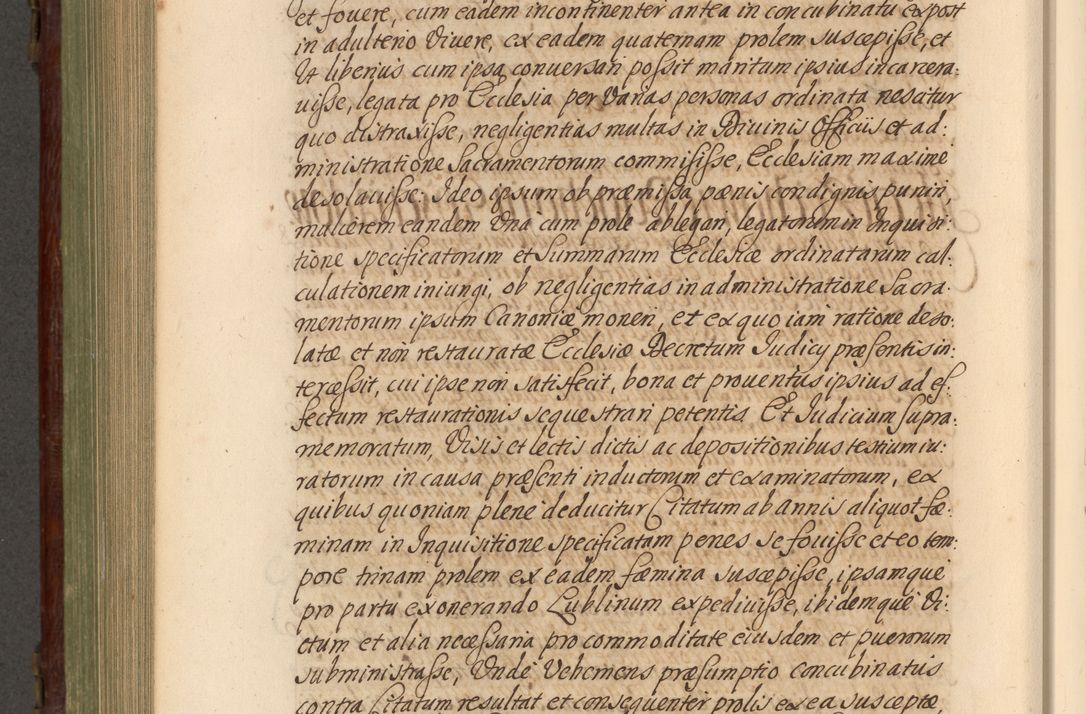 et fovere, cum eadem incontinenter antea in concubinatu ex post
in adulterio Vivere, ex eadem quaternam prolem suscepiſse, et
Ut liberius cum ipsa conversari poſsit maritum ipsius incarcera-
viſse, legata pro Ecclesia per Varias personas ordinata nescitur
quo distraxiſse, negligentias multas in Divinis Officiis et ad:
ministratione Sacramentorum commiſiſse, Ecclesiam maxime
desolaviſse: Ideo ipsum ob præmiſsa pœnis condignis puniri,
mulierem eandem Una cum prole ablegari, legatorum in Inquisi:
tione specificatorum et Summarum Ecclesiæ ordinatarum cal-
culationem iniungi, ob negligentias in administratione Sacra-
mentorum ipsum Canonicæ moneri, et ex quo iam ratione deso:
latæ et non restauratæ Ecclesiæ Decretum Iudicÿ præſentis in:
terceſsit, cui ipse non satisfecit, bona et proventus ipsius ad ef-
fectum restaurationis sequestrari petentis. Et Iudicium ſupra-
memoratum, Visis et lectis dictis ac depositionibus testium iu:
ratorum in causa præſenti inductorum et examinatorum, ex
quibus quoniam plene deducitur Citatum ab annis aliquot fæ-
minam in Inquisitione specificatam penes se foviſse et eo tem:
pore trinam prolem ex eadem fæmina suscepiſse, ipsamque
pro partu exonerando Lublinum expediviſse, ibidemque Vi-
ctum et alia neceſsaria pro commoditate eiusdem et puerorum
subministraſse, Unde Vehemens præsumptio concubinatus
contra Citatum resultat et consequenter prolis ex ea susceptæ,